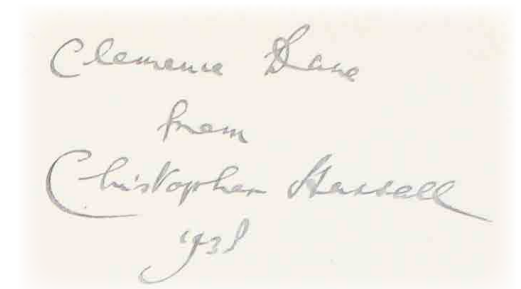 Clemence Dane
from
Christopher Hassall
1938